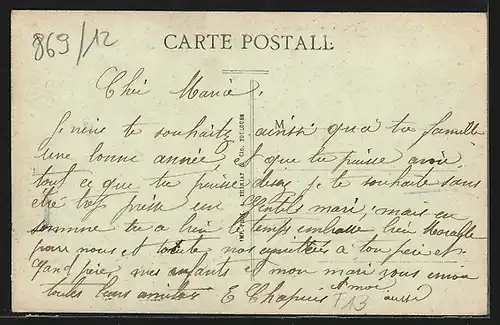 869/12
CARTE POSTALE
Chér Marie
Je viens te souhaitez ainsi qua ta famille
une bonne année, et que tu puisse avoir
tout ce que tu puisse désir je te souhaite sans
être très pressé un gentils mari, mais en
somme tu a bien le temps embrasse bien
pour nous et toute nos amitiées a ton père et
Grand père, mes enfants et mon mari vous envoi
toutes leurs amitiés E Chapuis et moi aussi
M
T13